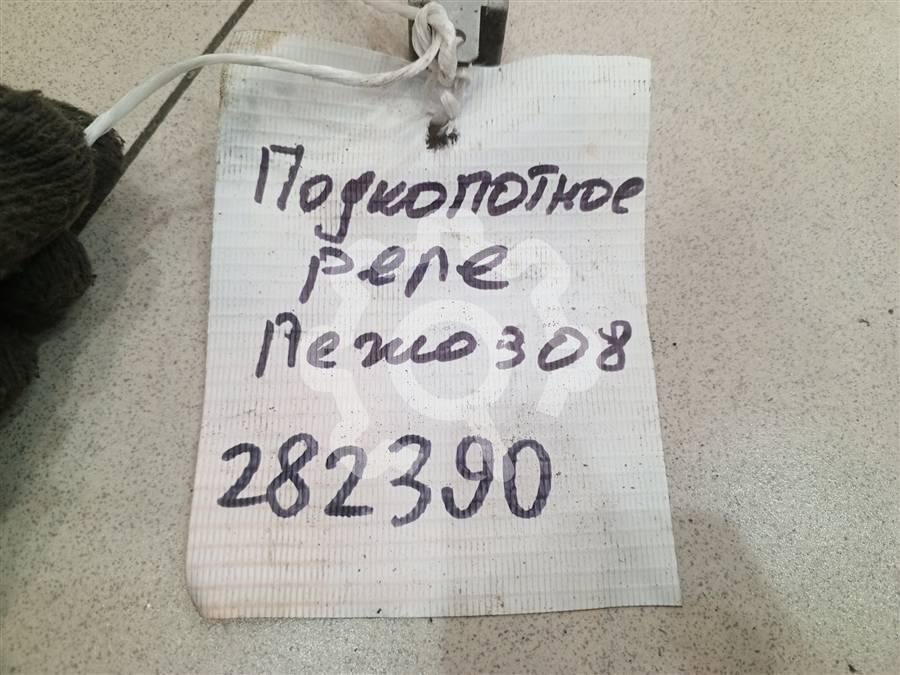 Подкопотное
реле
Пежо 308
282390